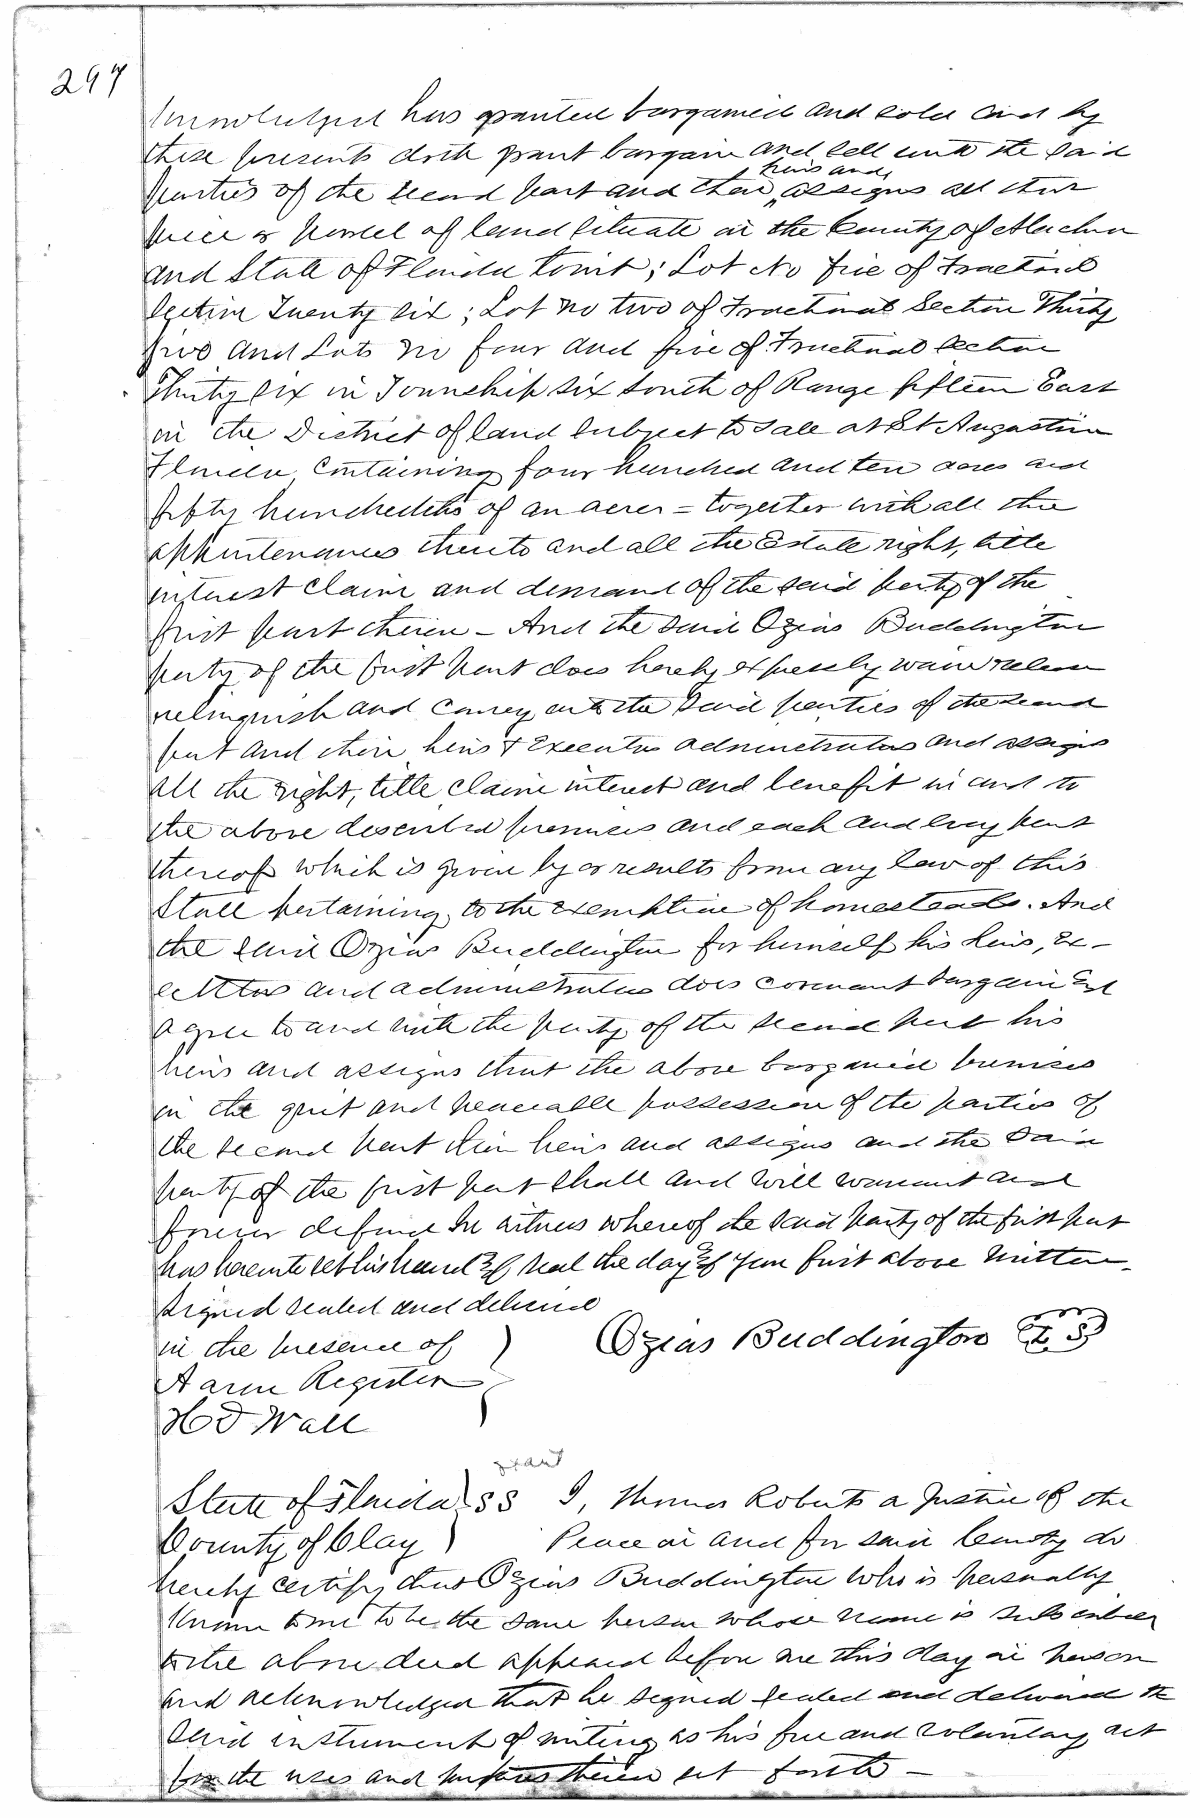 297
knowledged has granted bargained and sold and by
these presents doth grant bargain and sell unto the said
heirs and
parties of the second part and their assigns all that
piece or parcel of land situate in the County of Alachua
and State of Florida towit; Lot No five of Fractional
Section Twenty six; Lot no two of Fractional Section Thirty
five and Lots No four and five of Fractional Section
Thirty six in Township six South of Range fifteen East
in the District of land subject to sale at St Augustine
Florida containing four hundred and ten acres and
fifty hundredths of an acres = together with all the
appurtenances thereto and all the Estate right, title
interest claim and demand of the said party of the
first part therein - And the said Ozias Buddington
party of the first part does hereby expressly waive release
relinquish and convey unto the said parties of the second
part and their heirs & Executors administrators and assigns
all the right, title claim interest and benefit in and to
the above described premises and each and every part
thereof which is given by or results from any law of this
State pertaining to the exemption of homesteads. And
the said Ozias Buddington for himself his heirs, Ex-
ecutors and administrators does covenant bargain and
agree to and with the party of the second part his
heirs and assigns that the above bargained premises
in the quiet and peaceable possession of the parties of
the second part their heirs and assigns and the said
party of the first part shall and will warrant and
forever defend In witness whereof the said party of the first part
has hereunto set his hand & seal the day & year first above written.
Signed sealed and delivered
in the presence of
Ozias Buddington L S
Aaron Register
H D Wall
grant
State of Florida SS I, Thomas Roberts a Justice of the
County of Clay Peace in and for said County do
hereby certify that Ozias Buddington who is personally
known to me to be the same person whose name is subscribed
to the above deed appeared before me this day in person
and acknowledged that he signed sealed and delivered the
said instrument of writing as his free and voluntary act
for the uses and purposes therein set forth -